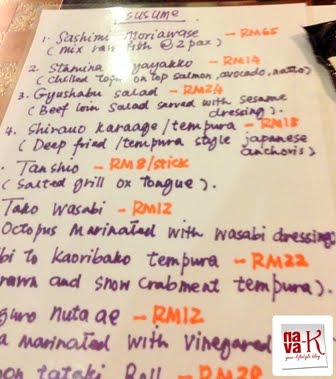 SUSUME
1. Sashimi Moriawase - RM65
(mix raw fish @ 2 pax)
2. Stamina yayakko - RM14
(chilled tofu on top salmon, avocado, natto)
3. Gyushabu salad - RM24
(Beef loin salad served with sesame
dressing).
4. Shirauo karaage/tempura - RM18
(Deep fried/tempura style japanese
anchovis)
Tanshio - RM8/stick
(Salted grill ox tongue).
Tako Wasabi - RM12
Octopus Marinated with wasabi dressing
bi to Kaoribako tempura - RM22
rawn and snow crabment tempura).
guro nuta ae - RM12
a marinated with vinegared
on tataki Roll - RM28
nava-K
your lifestyle blog